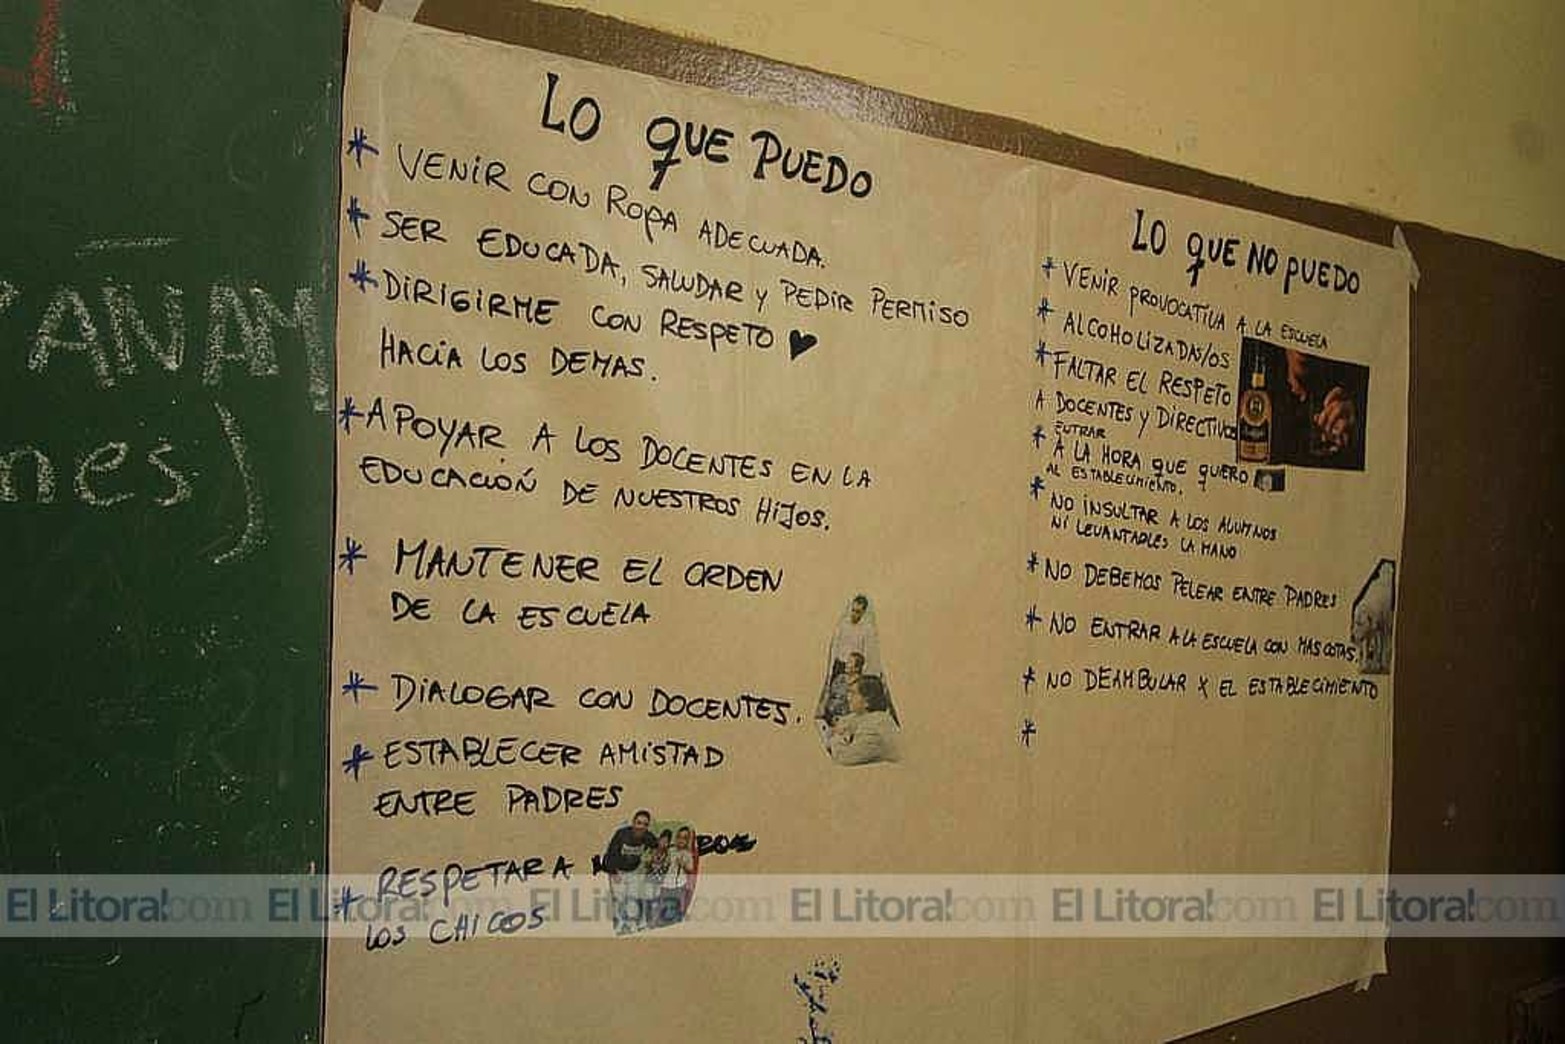 LO QUE PUEDO
* VENIR CON ROPA ADECUADA.
* SER EDUCADA, SALUDAR Y PEDIR PERMISO
* DIRIGIRME CON RESPETO ♥
HACIA LOS DEMAS.
* APOYAR A LOS DOCENTES EN LA
EDUCACIÓN DE NUESTROS HIJOS.
* MANTENER EL ORDEN
DE LA ESCUELA
* DIALOGAR CON DOCENTES.
* ESTABLECER AMISTAD
ENTRE PADRES
* RESPETAR A
LOS CHICOS
LO QUE NO PUEDO
* VENIR PROVOCATIVA A LA ESCUELA
* ALCOHOLIZADAS/OS
* FALTAR EL RESPETO
A DOCENTES Y DIRECTIVOS
ENTRAR
* A LA HORA QUE QUIERO
AL ESTABLECIMIENTO.
* NO INSULTAR A LOS ALUMNOS
NI LEVANTARLES LA MANO
* NO DEBEMOS PELEAR ENTRE PADRES
* NO ENTRAR A LA ESCUELA CON MASCOTAS.
* NO DEAMBULAR X EL ESTABLECIMIENTO
*
nes)
El Litoral.com El Litoral.com El Litoral.com El Litoral.com El Litoral.com El Litoral.com